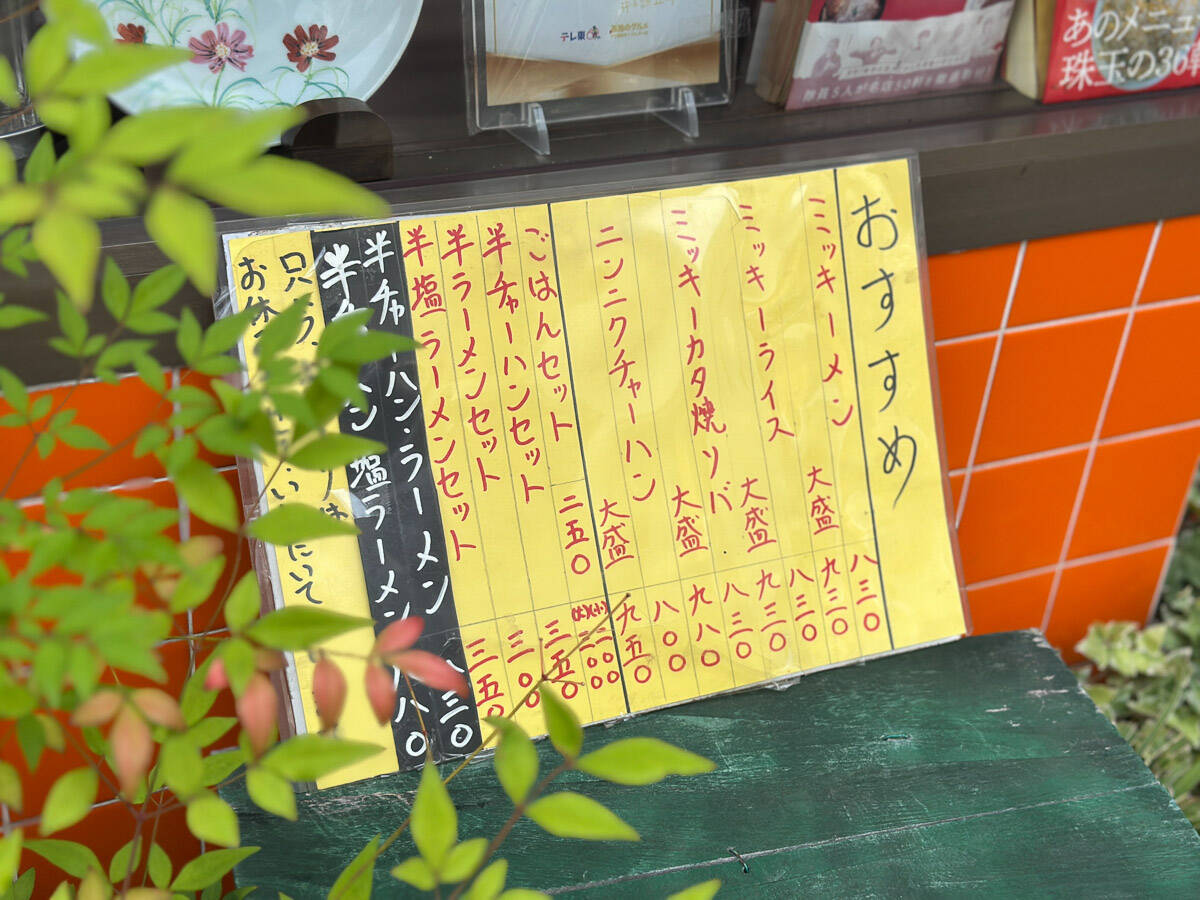 テレ東
あのメニュ
珠玉の36軒
おすすめ
ミッキーメン 八三〇
大盛 九三〇
ミッキーライス 八三〇
大盛 九三〇
ミッキーカタ焼ソバ 八三〇
大盛 九八〇
ニンニクチャーハン 八〇〇
大盛 九五〇
ごはんセット 二五〇 (小)二〇〇 (大)三〇〇
半チャーハンセット 三五〇
半ラーメンセット 三〇〇
半塩ラーメンセット 三五〇
半チャーハン・ラーメン 八三〇
半チャ ン 塩ラーメン 八八〇